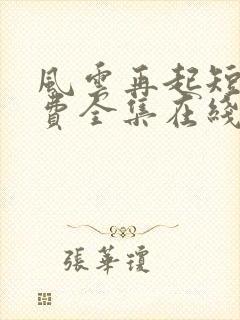 風雲再起短
費全集在綫
張華瓊